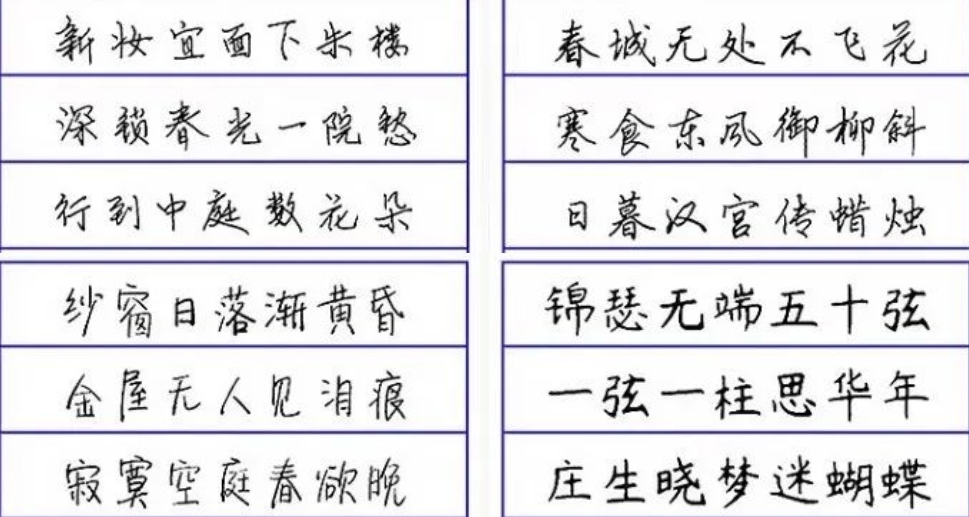 新妆宜面下朱楼
深锁春光一院愁
行到中庭数花朵
春城无处不飞花
寒食东风御柳斜
日暮汉宫传蜡烛
纱窗日落渐黄昏
金屋无人见泪痕
寂寞空庭春欲晚
锦瑟无端五十弦
一弦一柱思华年
庄生晓梦迷蝴蝶